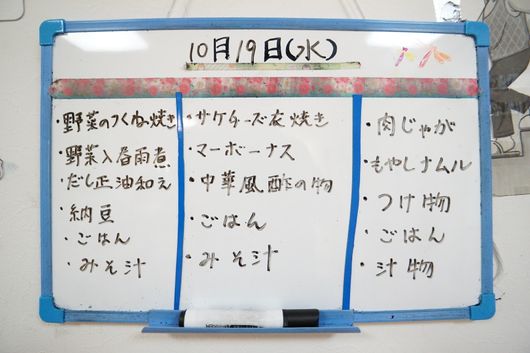 10月19日(水)
・野菜のつくね焼き
・野菜入春雨煮
・だし正油和え
・納豆
・ごはん
・みそ汁
・サケチーズ衣焼き
・マーボーナス
・中華風酢の物
・ごはん
・みそ汁
・肉じゃが
・もやしナムル
・つけ物
・ごはん
・汁物